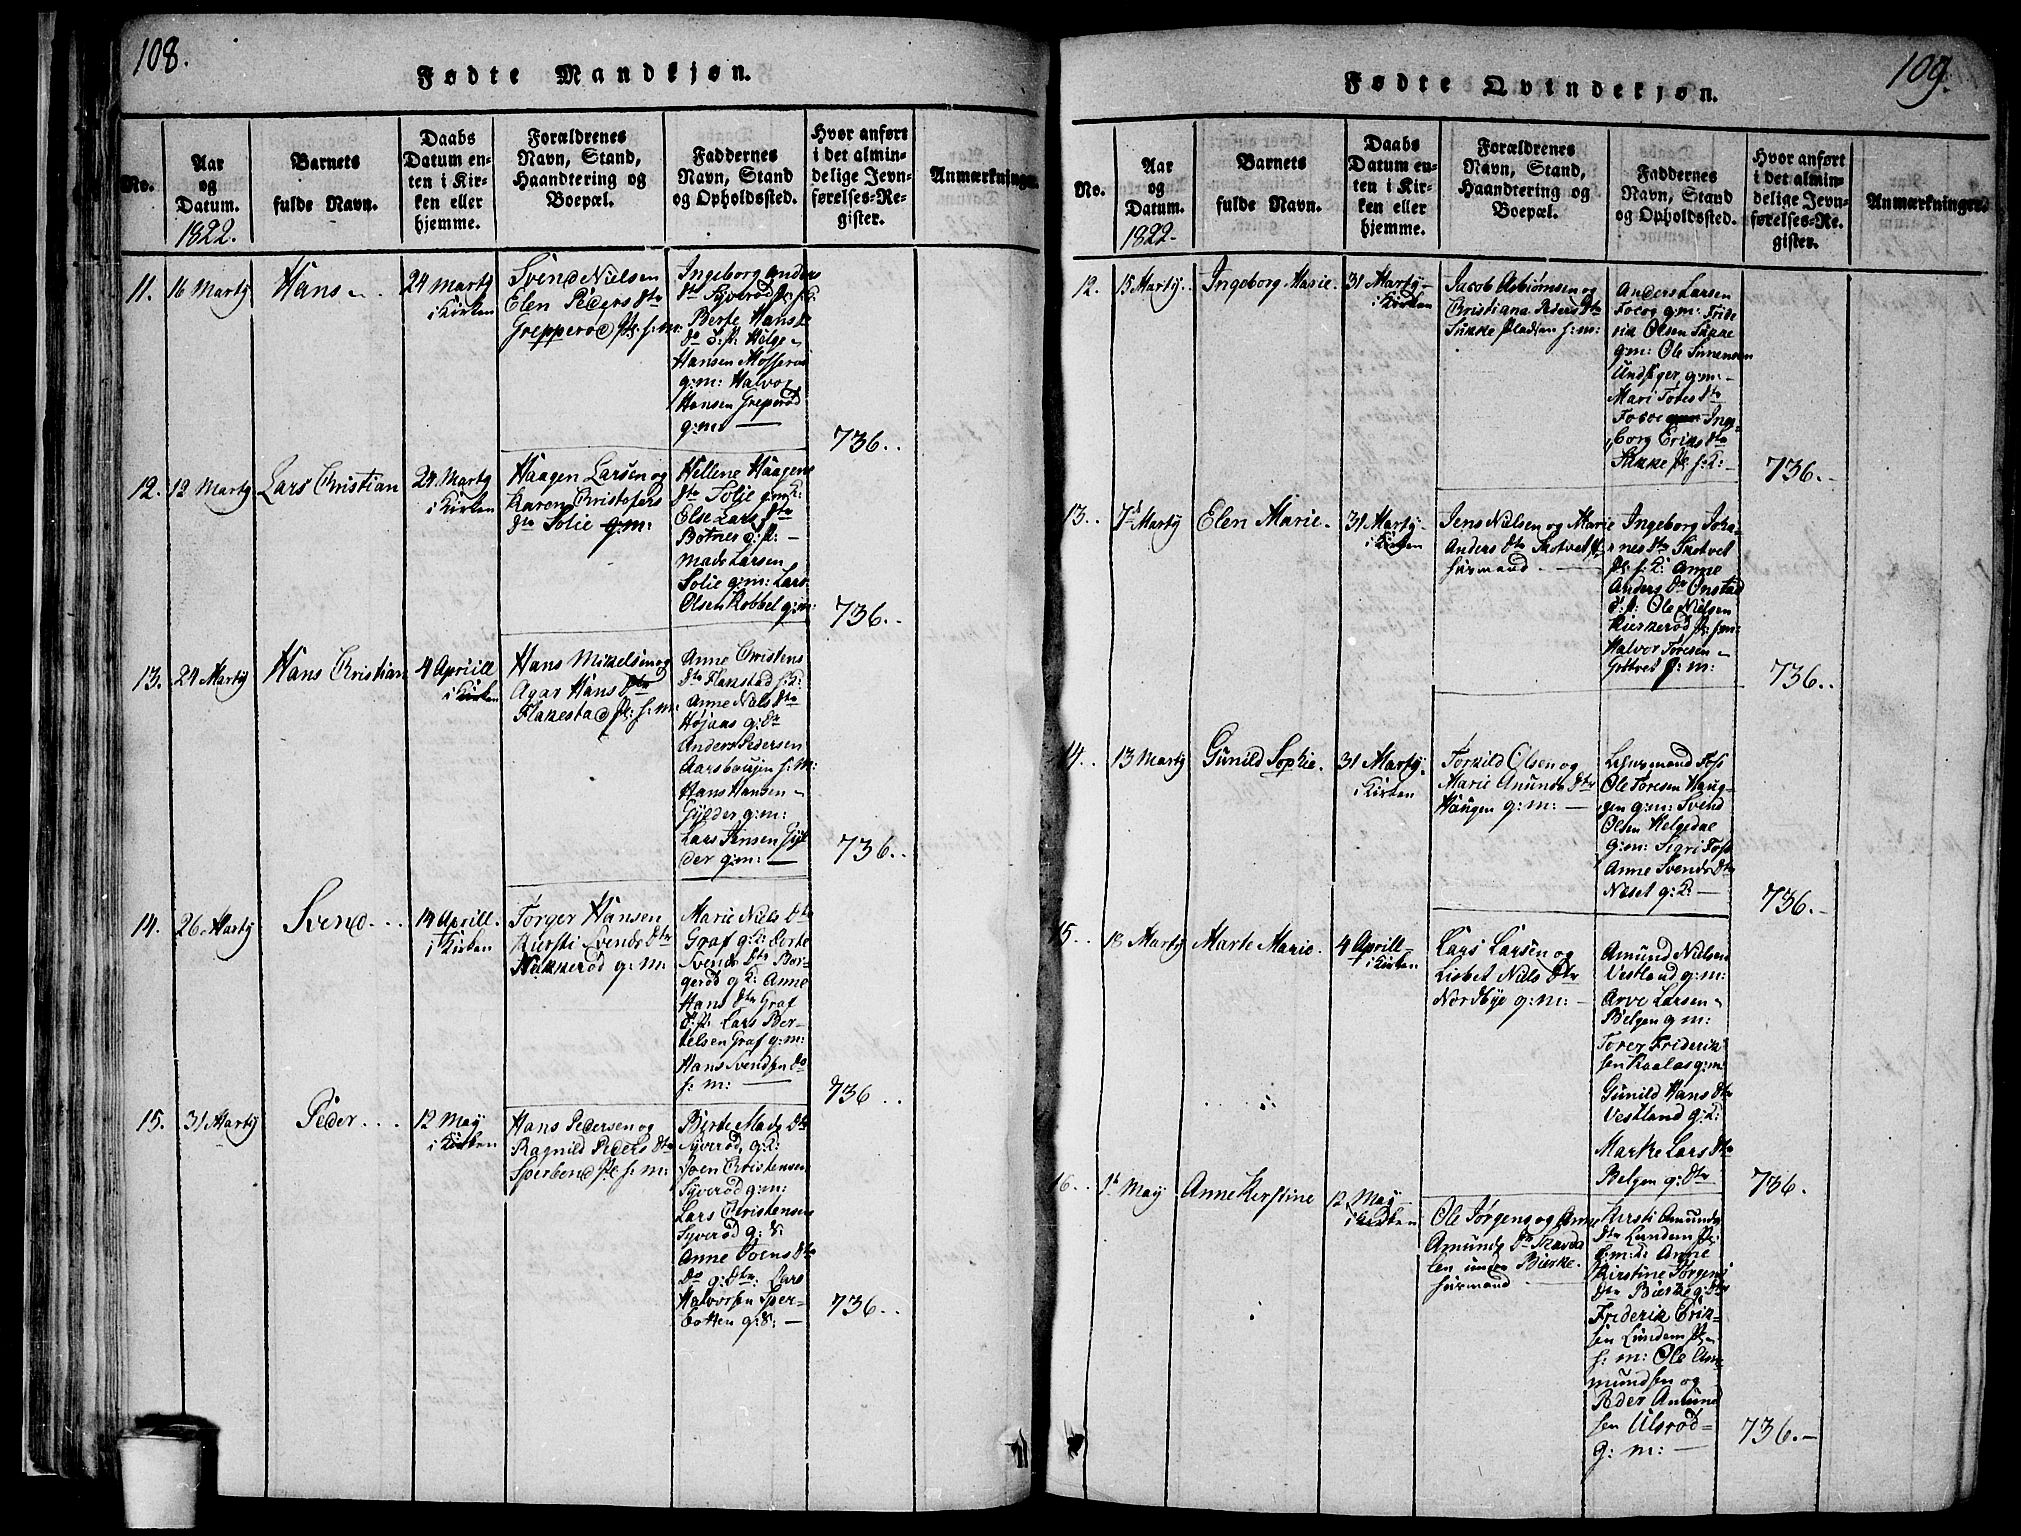 108.
Fødte Mandkjøn.
No.
Aar
og
Datum.
1822.
Barnets
fulde Navn.
Daabs
Datum en-
ten i Kir-
ken eller
hjemme.
Forældrenes
Navn, Stand,
Haandtering og
Boepæl.
Faddernes
Navn, Stand
og Opholdssted.
Hvor anført
i det almin-
delige Jevn-
førelses-Re-
gister.
Anmærkninger.
11.
16 Marty
Hans
24 Marty
i Kirken
Svend Nielsen
Elen Peders Dtr
Grepperød Pl: h: m:
Ingeborg Anders
Dtr Syverød
Berte Hans
Helge
Hansen
g: m: Halvor
Hansen Greperød
g: m:
736..
12.
12 Marty
Lars Christian
24 Marty
i Kirken
Haagen Larsen og
Karen Christofers
Dtr Solie g: m:
Hellene Haagens
Dtr Solie g: K:
Else Lars Dtr
Botner d: p:
Mads Larsen
Solie g: m: Lars
Olsen Robbel g: m:
736..
13.
24 Marty
Hans Christian
4 Aprill
i Kirken
Hans Mikelsen og
Agar Hans Dtr
Flakestad Pl: h: m:
Anne Christens
Dtr Flanstad h: K:
Anne Niels Dtr
Højaas g: Dtr
Anders Pedersen
h: m:
Hans Hansen
Gylder g: m:
Lars Jensen Gyl
der g: m:
736..
14.
26 Marty
Svend
14 Aprill.
i Kirken
Torger Hansen
Kirsti Svends Dtr
Nækkerød g: m:
Marie Niels Dtr
Graf g: K: Dorte
Svends Dtr Bor-
gerød g: K: Anne
Hans Dtr Graf
d: p: Lars Ber-
telsen Graf g: m:
Hans Svendsen do
h: m:
736..
15.
31 Marty
Peder
12 May
i Kirken
Hans Pedersen og
Ragnild Peders Dtr
Sperbund Pl: h: m:
Berte Mads Dtr
Syverød, g: K:
Joen Christensen
Syverød g: m:
Lars Christensen
Syverød g: S:
Anne Joens Dtr
Do g: Dtr: Lars
Halvorsen Sper-
botten g: S:
736..
109.
Fødte Qvindekjøn.
No.
Aar
og
Datum.
1822.
Barnets
fulde Navn.
Daabs
Datum en-
ten i Kir-
ken eller
hjemme.
Forældrenes
Navn, Stand,
Haandtering og
Boepæl.
Faddernes
Navn, Stand
og Opholdssted.
Hvor anført
i det almin-
delige Jevn-
førelses-Re-
gister.
Anmærkninger.
12.
15 Marty.
Ingeborg Marie.
31 Marty
i Kirken
Jacob Asbiørnsen og
Christiana Peders Dtr
Sukke Pladsen h: m:
Anders Larsen
g: m:
Olsen Sukke
g: m: Ole Simensen
g: m:
Mari Tores Dtr
Inge-
borg Eriks Dtr
Sukke Pl: h: K:
736..
13..
7d Marty
Elen Marie.
31 Marty.
i Kirken
Jens Nielsen og Marie
Anders Dtr Skotvet
huusmand
Ingeborg Joha-
nes Dtr Skotvet
Pl: h: K: Anne
Anders Dr Onstad
d: p: Ole Nielsen
Kierkerød Pl: h: m:
Halvor Toresen
g: m:
736..
14..
13 Marty
Gunild Sophie.
31 Marty.
i Kirken
Torkild Olsen og
Marie Anunds Dtr
Haugen g: m:
Foss
Ole Toresen Haug-
gen g: m: Svend
Olsen Helgedal
g: m: Sigri Foss
Anne Svends Dtr
Næset g: K:
736..
15..
18 Marty
Marte Marie.
4 Aprill
i Kirken
Lars Larsen og
Lisbet Niels Dtr
Nordbye g: m:
Amund Nielsen
Vestland g: m:
Arve Larsen
Belgen g: m:
Torer Friderik
sen Kaalas g: m:
Gunild Hans Dtr
Vestland g: K:
Marte Lars Dtr
Belgen g: Dtr
736.
16..
1t May
Anne Kirstine
12 May
i Kirken
Ole Jørgens og Anne
Amunds Dr
under Bierke.
huusmand
Kirsti Amunds
Dtr Lundem Pl:
Anne
Kirstine Jørgens
Dtr Bierke g: Dtr
Friderik Erik-
sen Lundem Pl:
h: m: Ole Am-
mundsen og
Peder Amund
sen Ulsrød
g: m:
736.